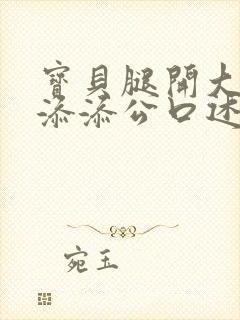 寶貝腿開大
添添公口述
宛玉